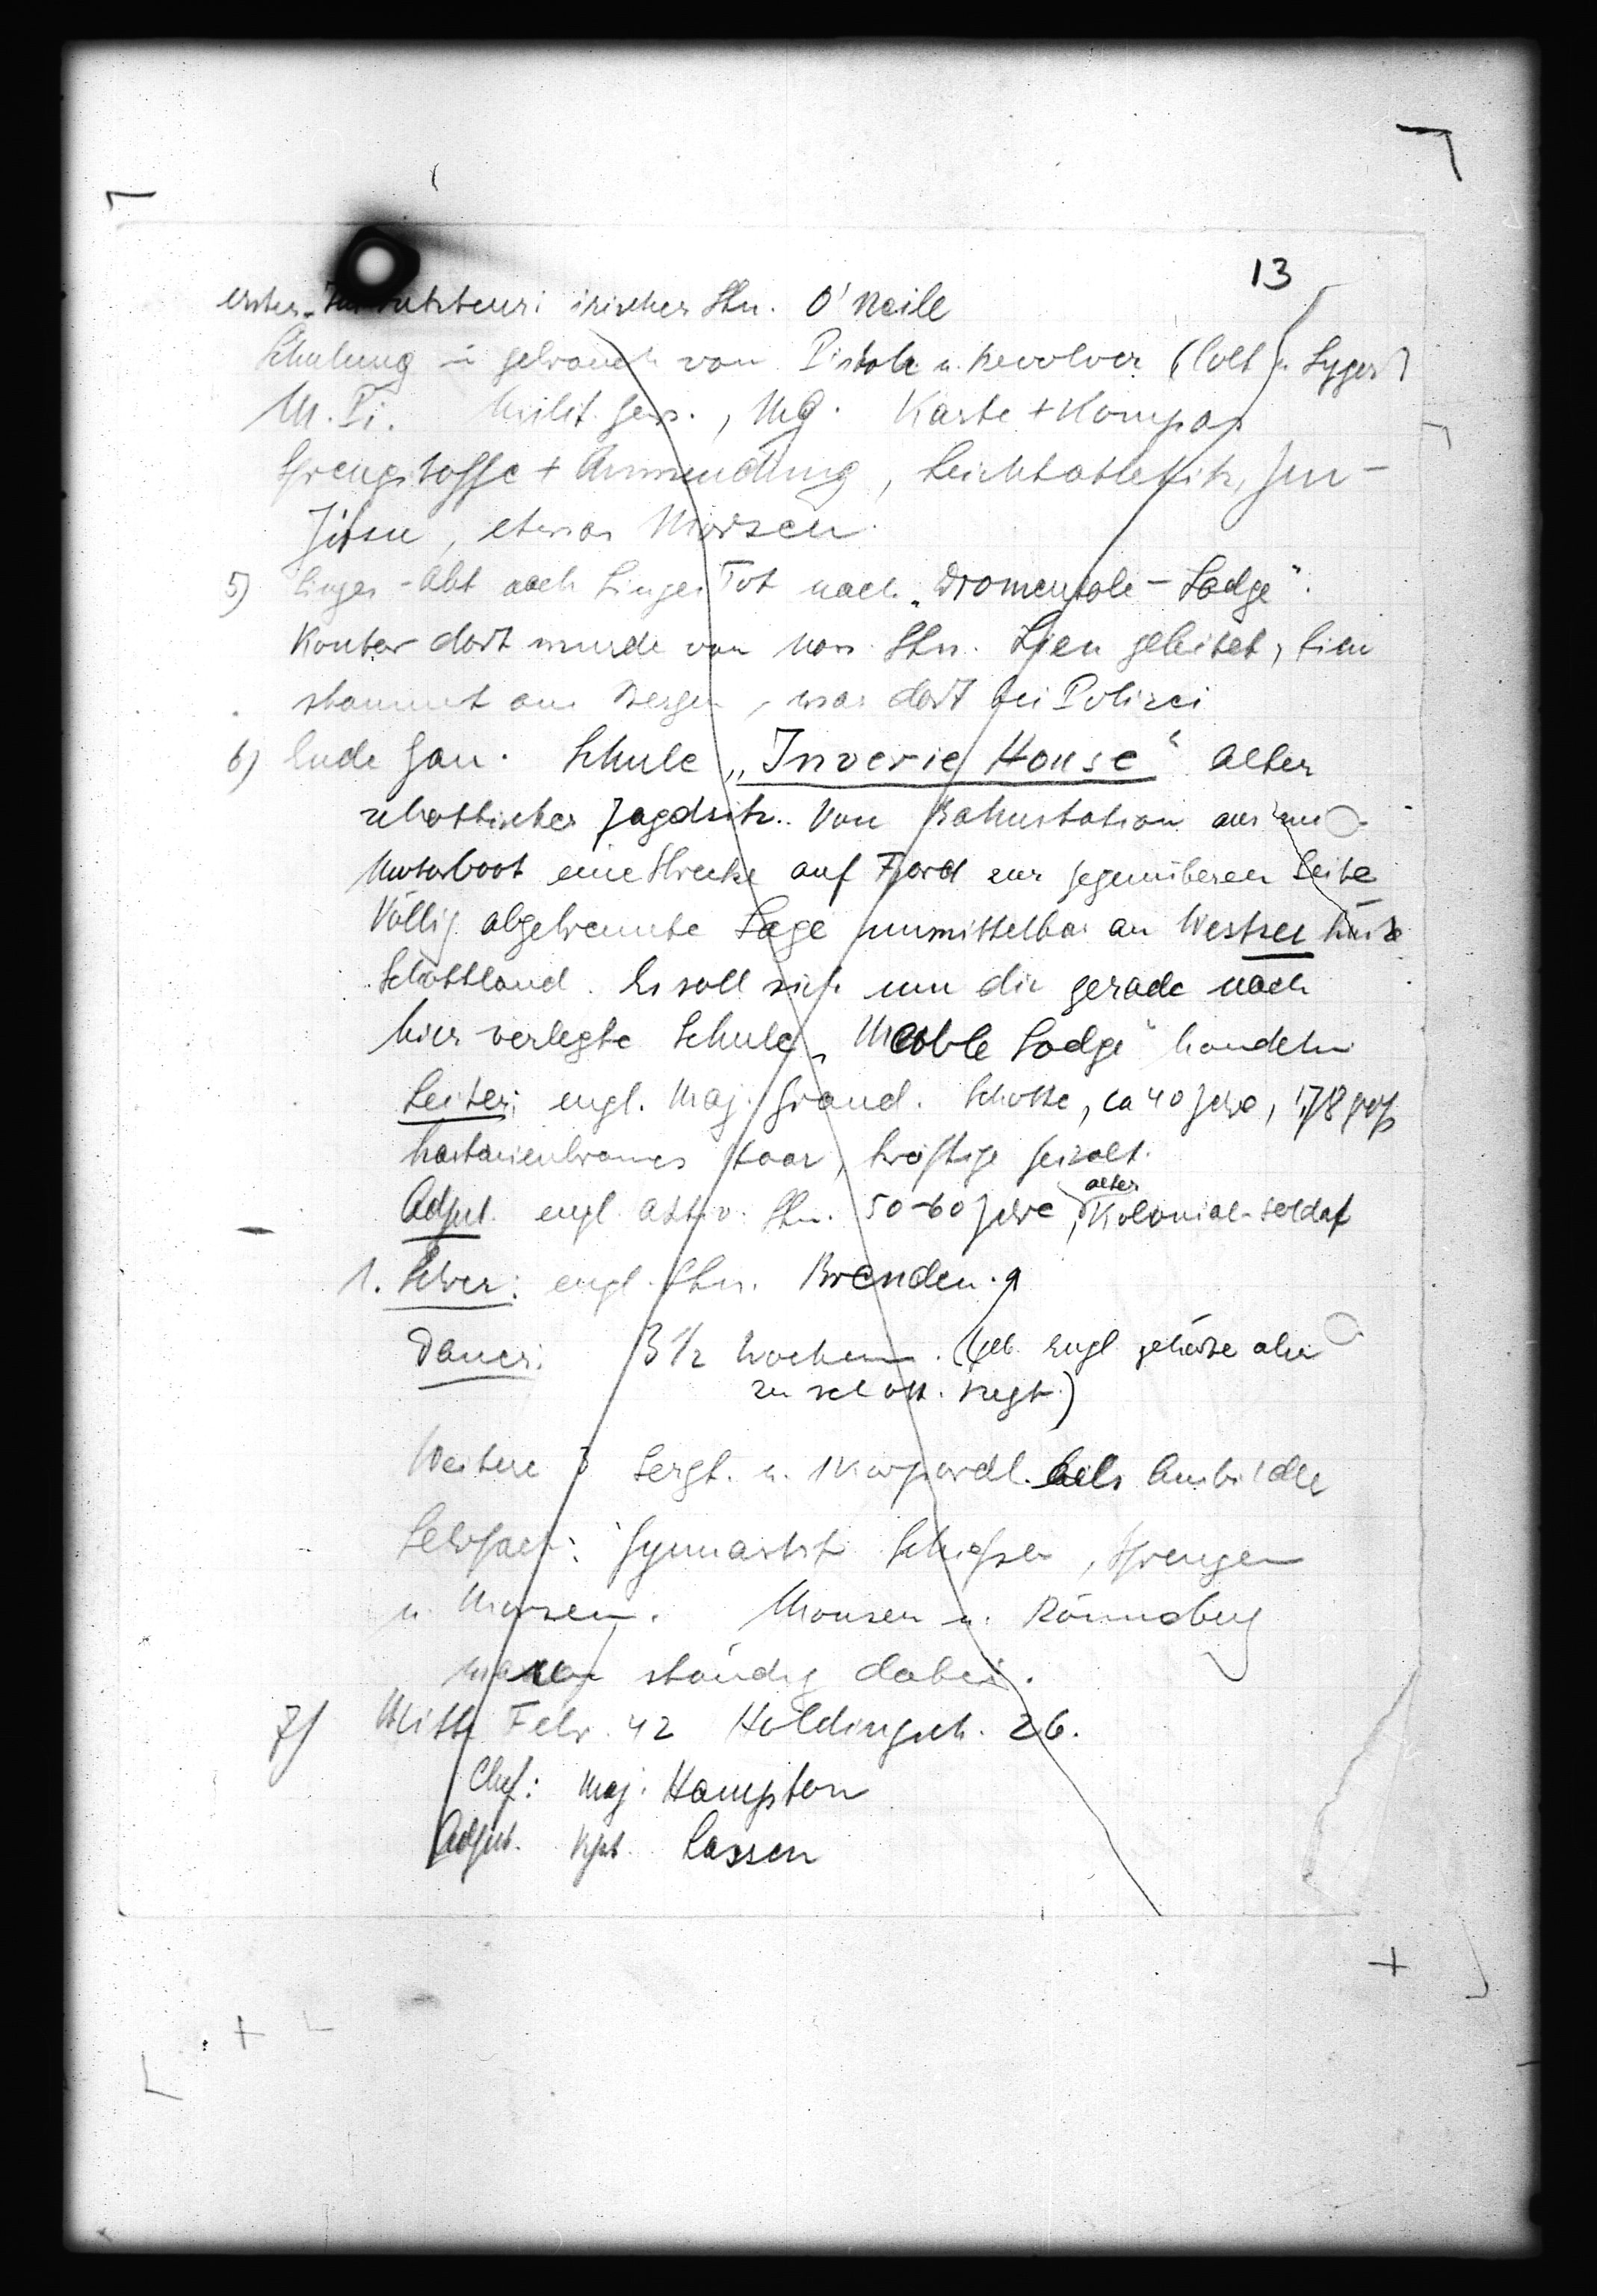 13
erster Instrukteur: irischer Ltn. O'Neile
Schulung i. gebrauch von Pistole u. Revolver (Colt u.
M. Pi. Milit. Gew., MG. Karte + Kompaß
Sprengstoffe + Anwendung, Leichtatletik, Jiu-
Jitsu, etwas Morsen.
5) Linge-Abt nach nach „Dromenrole-Lodge".
Kontor dort wurde von norw. Ltn. Lien geleitet, Lien
stammt aus Bergen, war dort bei Polizei
6) Ende Jan. Schule „Inverie House" alter
schottischer Jagdsitz. Von Bahnstation aus mit
Motorboot eine Strecke auf Fjord zur gegenüberen Seite
Völlig abgetrennte Lage unmittelbar an Westsee küste
Schottland. Es soll sich um die gerade nach
hier verlegte Schule „Meoble Lodge" handeln
Leiter: engl. Maj. Grand. Schotte, ca 40 Jahre, 1,78 groß
kastanienbraunes Haar, kräftige Gestalt.
Adjut. engl. aktiv. Ltn. 50-60 Jahre, alter Kolonial-Soldat
1. Lehrer: engl. Ltn. Brenden.
Dauer: 3 1/2 Wochen. (geb. Engl. gehörte aber
zu schott. Regt.)
Weitere 3 Sergt. u. 1 Korporal. als Ausbilder
Lehrfach: Gymnastik Schießen, Sprengen
u. Morsen. Monsen u. Rönneberg
waren ständig dabei.
7) Mitte Febr. 42 Holdingsch. 26.
Chef: Maj. Hampton
Adjut. Kpt. Lassen